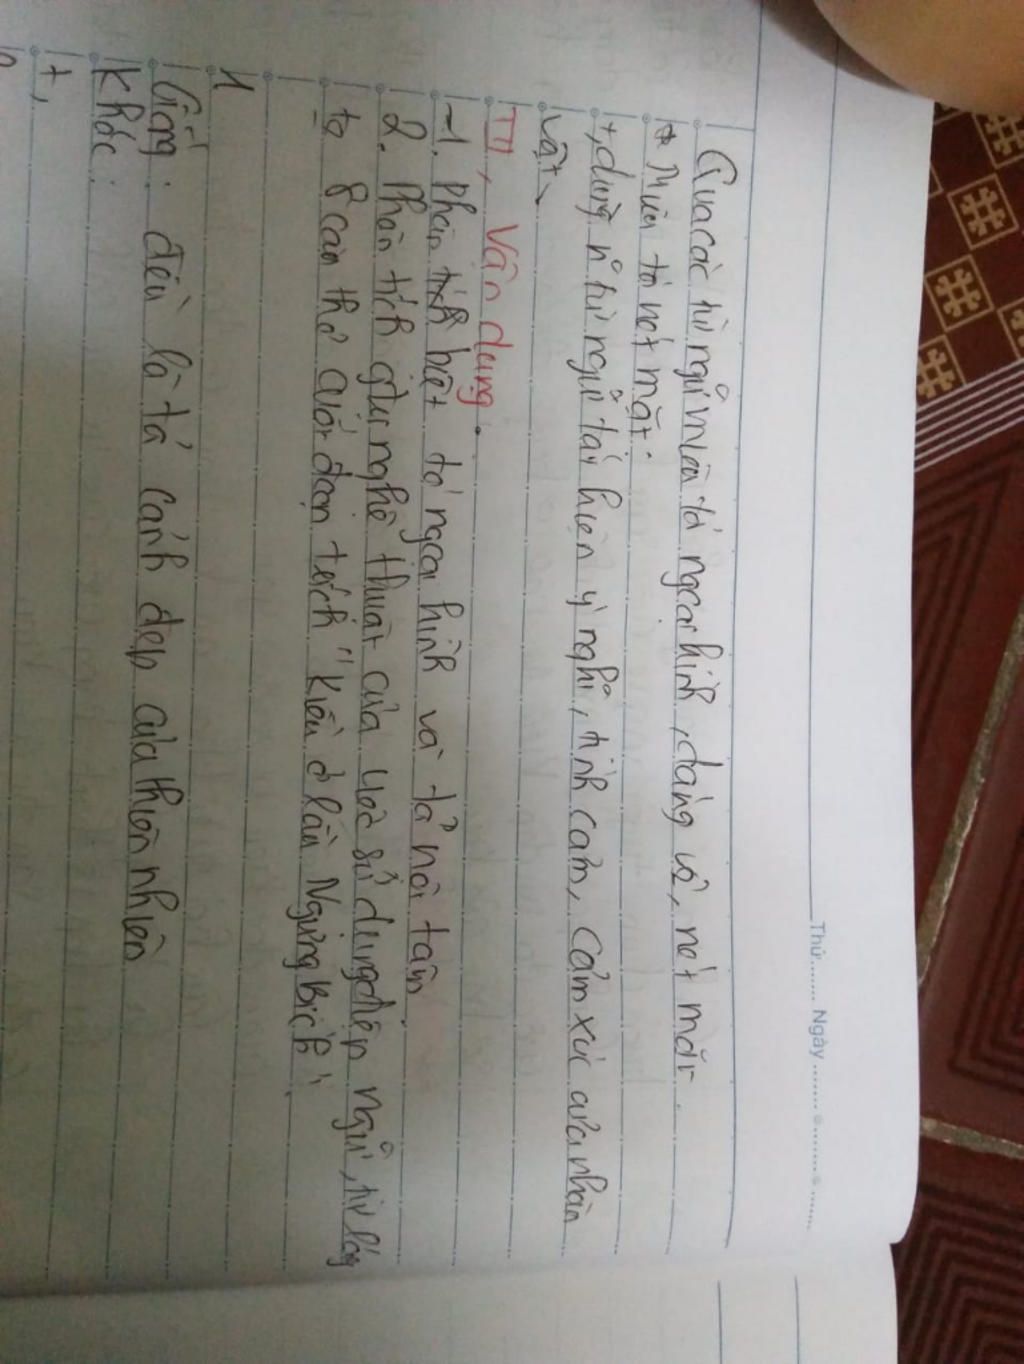 Thứ....... Ngày.......
Qua các từ ngữ miêu tả ngoại hình, dáng vẻ, nét mặt.
* Miêu tả nét mặt.
+, dùng n~ từ ngữ tái hiện ý nghĩ, tình cảm, cảm xúc của nhân
vật.
III, Vận dụng.
1. phân biệt tả ngoại hình và tả nội tâm
2. Phân tích giá nghệ thuật của việc sử dụng điệp ngữ, từ láy
to 8 câu thơ cuối đoạn trích "Kiều ở lầu Ngưng Bích".
1
Giống: đều là tả cảnh đẹp của thiên nhiên
Khác:
+,